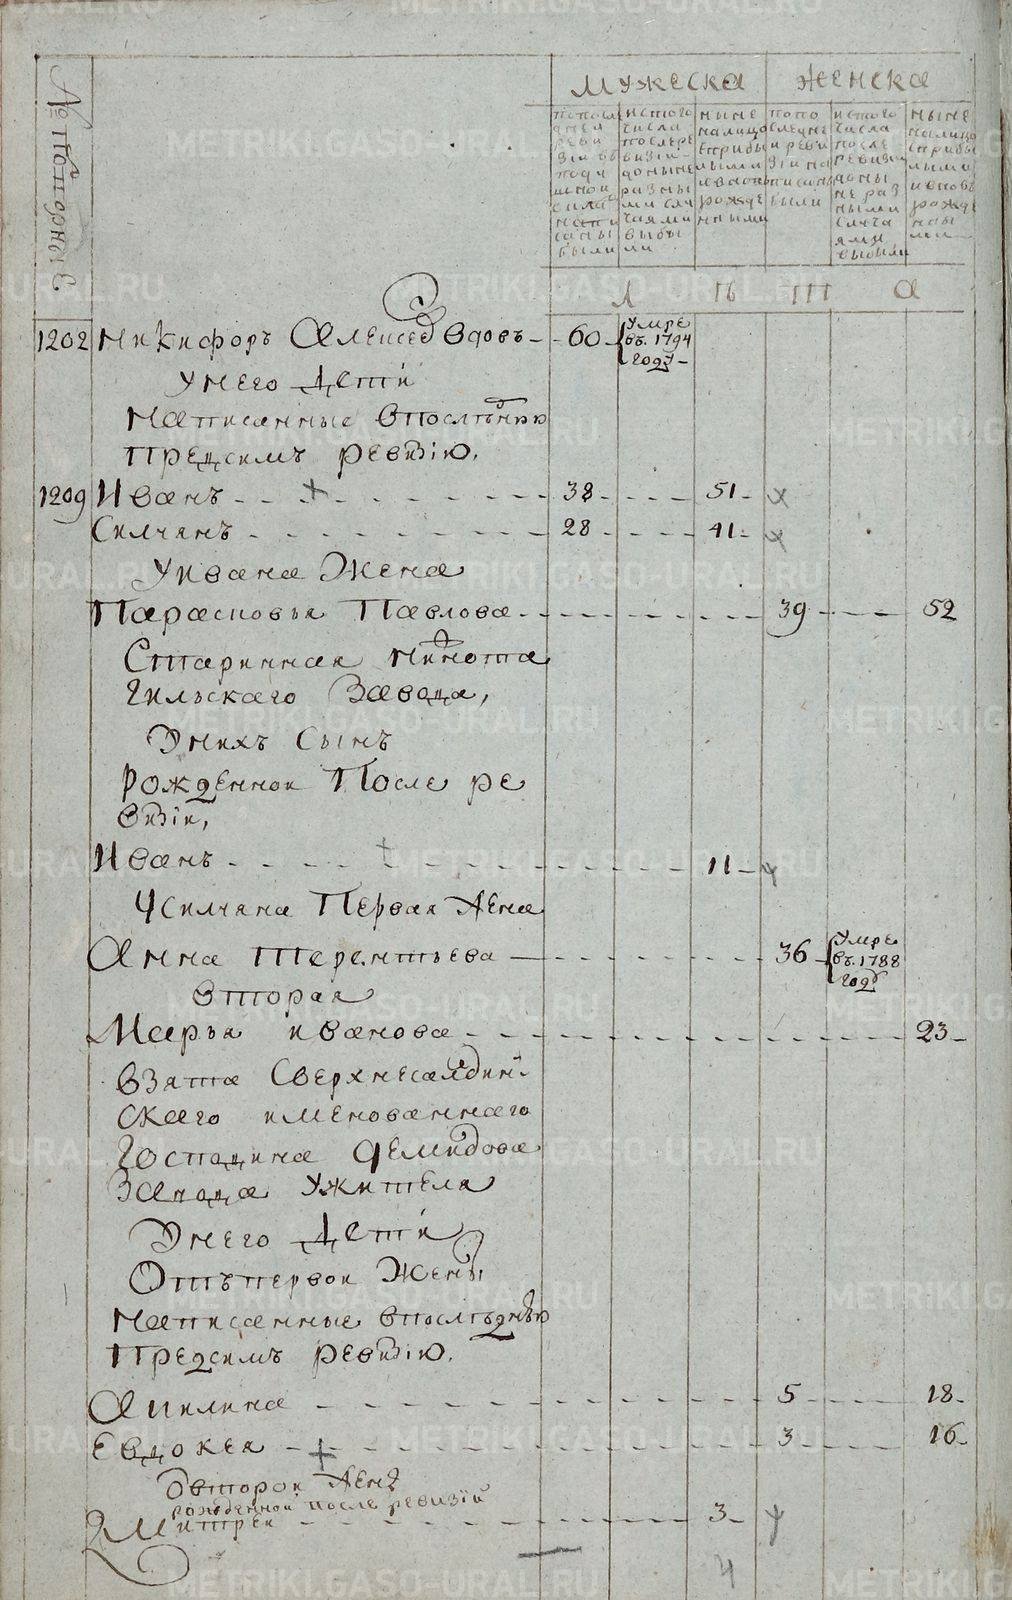 METRIKI.GASO-URAL.RU
№ Попорные
мужеска
женска
попосле
дней
реви
зіи въ
пода
сила
написаны
были
истого
числа
послере
визіи
доныне
разны
ми слу
чаями
выбы
ли
ныне
налицо
сприбы
лыми
ивновь
рожде
нными
попо
следне
и реви
зіи на
писаны
были
истого
числа
после
ревизіи
доны
не раз
ными
случа
ями
выбыли
ныне
налицо
сприбы
лыми
ивновь
рожде
нны
ми
Л П Ш а
1202 Никифоръ Алексеевъ вдовъ - 60 - умре въ 1794 году -
Унего дети
Написанные впоследнюю
предсимъ ревизію.
1209 Иванъ - - 38 - - 51 -
Силчянъ - - 28 - - 41 -
Уивана Жена
Парасковья Павлова - - 39 - - 52
Старинная Нижнета
гильскаго Завода,
Унихъ сынъ
рожденной После ре
визіи,
Иванъ - - 11 -
Усилчяна Первая Жена
Анна Терентьева - - 36 - умре въ 1788 году
вторая
Марья иванова - - 23 -
взята Сверхнесалдин
скаго именованнаго
Господина Демидова
Завода ужителя
Унего Дети
Отъпервой Жены
Написанные впоследнюю
Предсимъ ревизію.
Акилина - - 5 - - 18 -
Евдокея - - 3 - - 16 -
Овторой жены
рожденной после ревизіи
Дмитрей - - 3 -
4